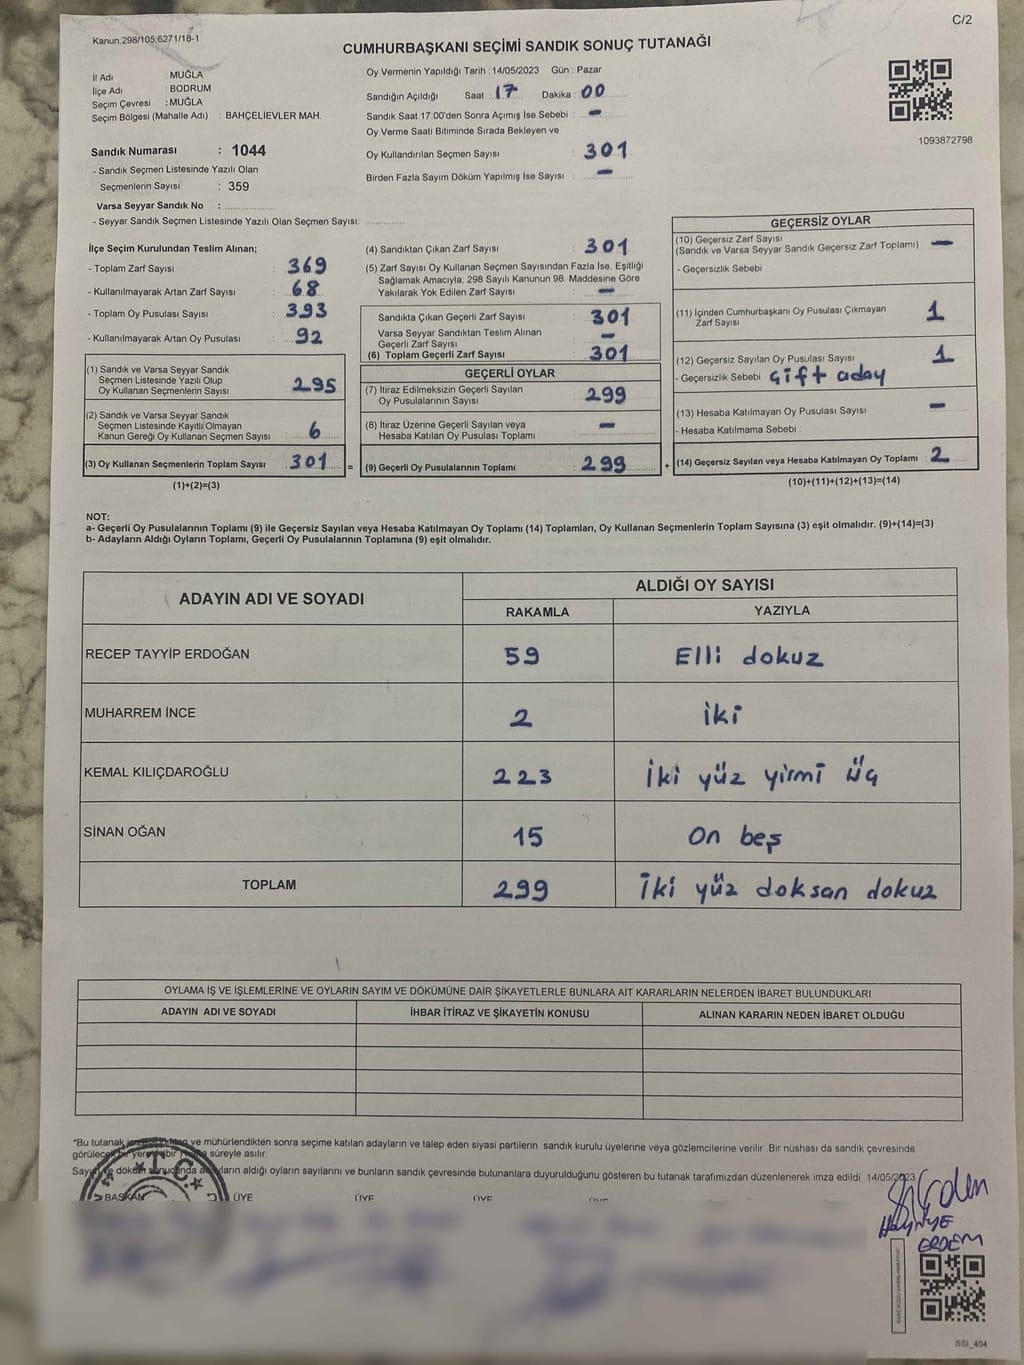 C/2
Kanun:298/105;6271/18-1
CUMHURBAŞKANI SEÇİMİ SANDIK SONUÇ TUTANAĞI
İl Adı : MUĞLA
İlçe Adı : BODRUM
Seçim Çevresi : MUĞLA
Seçim Bölgesi (Mahalle Adı) : BAHÇELİEVLER MAH.
Sandık Numarası : 1044
- Sandık Seçmen Listesinde Yazılı Olan
Seçmenlerin Sayısı : 359
Varsa Seyyar Sandık No :
- Seyyar Sandık Seçmen Listesinde Yazılı Olan Seçmen Sayısı:
Oy Vermenin Yapıldığı Tarih : 14/05/2023 Gün : Pazar
Sandığın Açıldığı Saat : 17 Dakika : 00
Sandık Saat 17:00'den Sonra Açımış İse Sebebi : -
Oy Verme Saati Bitiminde Sırada Bekleyen ve
Oy Kullandırılan Seçmen Sayısı : 301
Birden Fazla Sayım Döküm Yapılmış İse Sayısı : -
1093872798
İlçe Seçim Kurulundan Teslim Alınan;
- Toplam Zarf Sayısı : 369
- Kullanılmayarak Artan Zarf Sayısı : 68
- Toplam Oy Pusulası Sayısı : 393
- Kullanılmayarak Artan Oy Pusulası : 92
(1) Sandık ve Varsa Seyyar Sandık
Seçmen Listesinde Yazılı Olup
Oy Kullanan Seçmenlerin Sayısı : 295
(2) Sandık ve Varsa Seyyar Sandık
Seçmen Listesinde Kayıtlı Olmayan
Kanun Gereği Oy Kullanan Seçmen Sayısı : 6
(3) Oy Kullanan Seçmenlerin Toplam Sayısı : 301
(1)+(2)=(3)
(4) Sandıktan Çıkan Zarf Sayısı : 301
(5) Zarf Sayısı Oy Kullanan Seçmen Sayısından Fazla İse, Eşitliği
Sağlamak Amacıyla; 298 Sayılı Kanunun 98. Maddesine Göre
Yakılarak Yok Edilen Zarf Sayısı : -
Sandıkta Çıkan Geçerli Zarf Sayısı : 301
Varsa Seyyar Sandıktan Teslim Alınan
Geçerli Zarf Sayısı : -
(6) Toplam Geçerli Zarf Sayısı : 301
GEÇERLİ OYLAR
(7) İtiraz Edilmeksizin Geçerli Sayılan
Oy Pusulalarının Sayısı : 299
(8) İtiraz Üzerine Geçerli Sayılan veya
Hesaba Katılan Oy Pusulası Toplamı : -
= (9) Geçerli Oy Pusulalarının Toplamı : 299 +
GEÇERSİZ OYLAR
(10) Geçersiz Zarf Sayısı
(Sandık ve Varsa Seyyar Sandık Geçersiz Zarf Toplamı) : -
- Geçersizlik Sebebi
(11) İçinden Cumhurbaşkanı Oy Pusulası Çıkmayan
Zarf Sayısı : 1
(12) Geçersiz Sayılan Oy Pusulası Sayısı : 1
- Geçersizlik Sebebi çift aday
(13) Hesaba Katılmayan Oy Pusulası Sayısı : -
- Hesaba Katılmama Sebebi :
(14) Geçersiz Sayılan veya Hesaba Katılmayan Oy Toplamı : 2
(10)+(11)+(12)+(13)=(14)
NOT:
a- Geçerli Oy Pusulalarının Toplamı (9) ile Geçersiz Sayılan veya Hesaba Katılmayan Oy Toplamı (14) Toplamları, Oy Kullanan Seçmenlerin Toplam Sayısına (3) eşit olmalıdır. (9)+(14)=(3)
b- Adayların Aldığı Oyların Toplamı, Geçerli Oy Pusulalarının Toplamına (9) eşit olmalıdır.
ADAYIN ADI VE SOYADI ALDIĞI OY SAYISI
RAKAMLA YAZIYLA
RECEP TAYYİP ERDOĞAN 59 Elli dokuz
MUHARREM İNCE 2 iki
KEMAL KILIÇDAROĞLU 223 İki yüz yirmi üç
SİNAN OĞAN 15 On beş
TOPLAM 299 İki yüz doksan dokuz
OYLAMA İŞ VE İŞLEMLERİNE VE OYLARIN SAYIM VE DÖKÜMÜNE DAİR ŞİKAYETLERLE BUNLARA AİT KARARLARIN NELERDEN İBARET BULUNDUKLARI
ADAYIN ADI VE SOYADI İHBAR İTİRAZ VE ŞİKAYETİN KONUSU ALINAN KARARIN NEDEN İBARET OLDUĞU
*Bu tutanak ve mühürlendikten sonra seçime katılan adayların ve talep eden siyasi partilerin sandık kurulu üyelerine veya gözlemcilerine verilir. Bir nüshası da sandık çevresinde
görülecek bir yere bir hafta süreyle asılır.
Sayım ve döküm sonucunda adayların aldığı oyların sayılarını ve bunların sandık çevresinde bulunanlara duyurulduğunu gösteren bu tutanak tarafımızdan düzenlenerek imza edildi. 14/05/2023
T.C.
BAŞKAN ÜYE ÜYE ÜYE
ERDEM
SSI_404